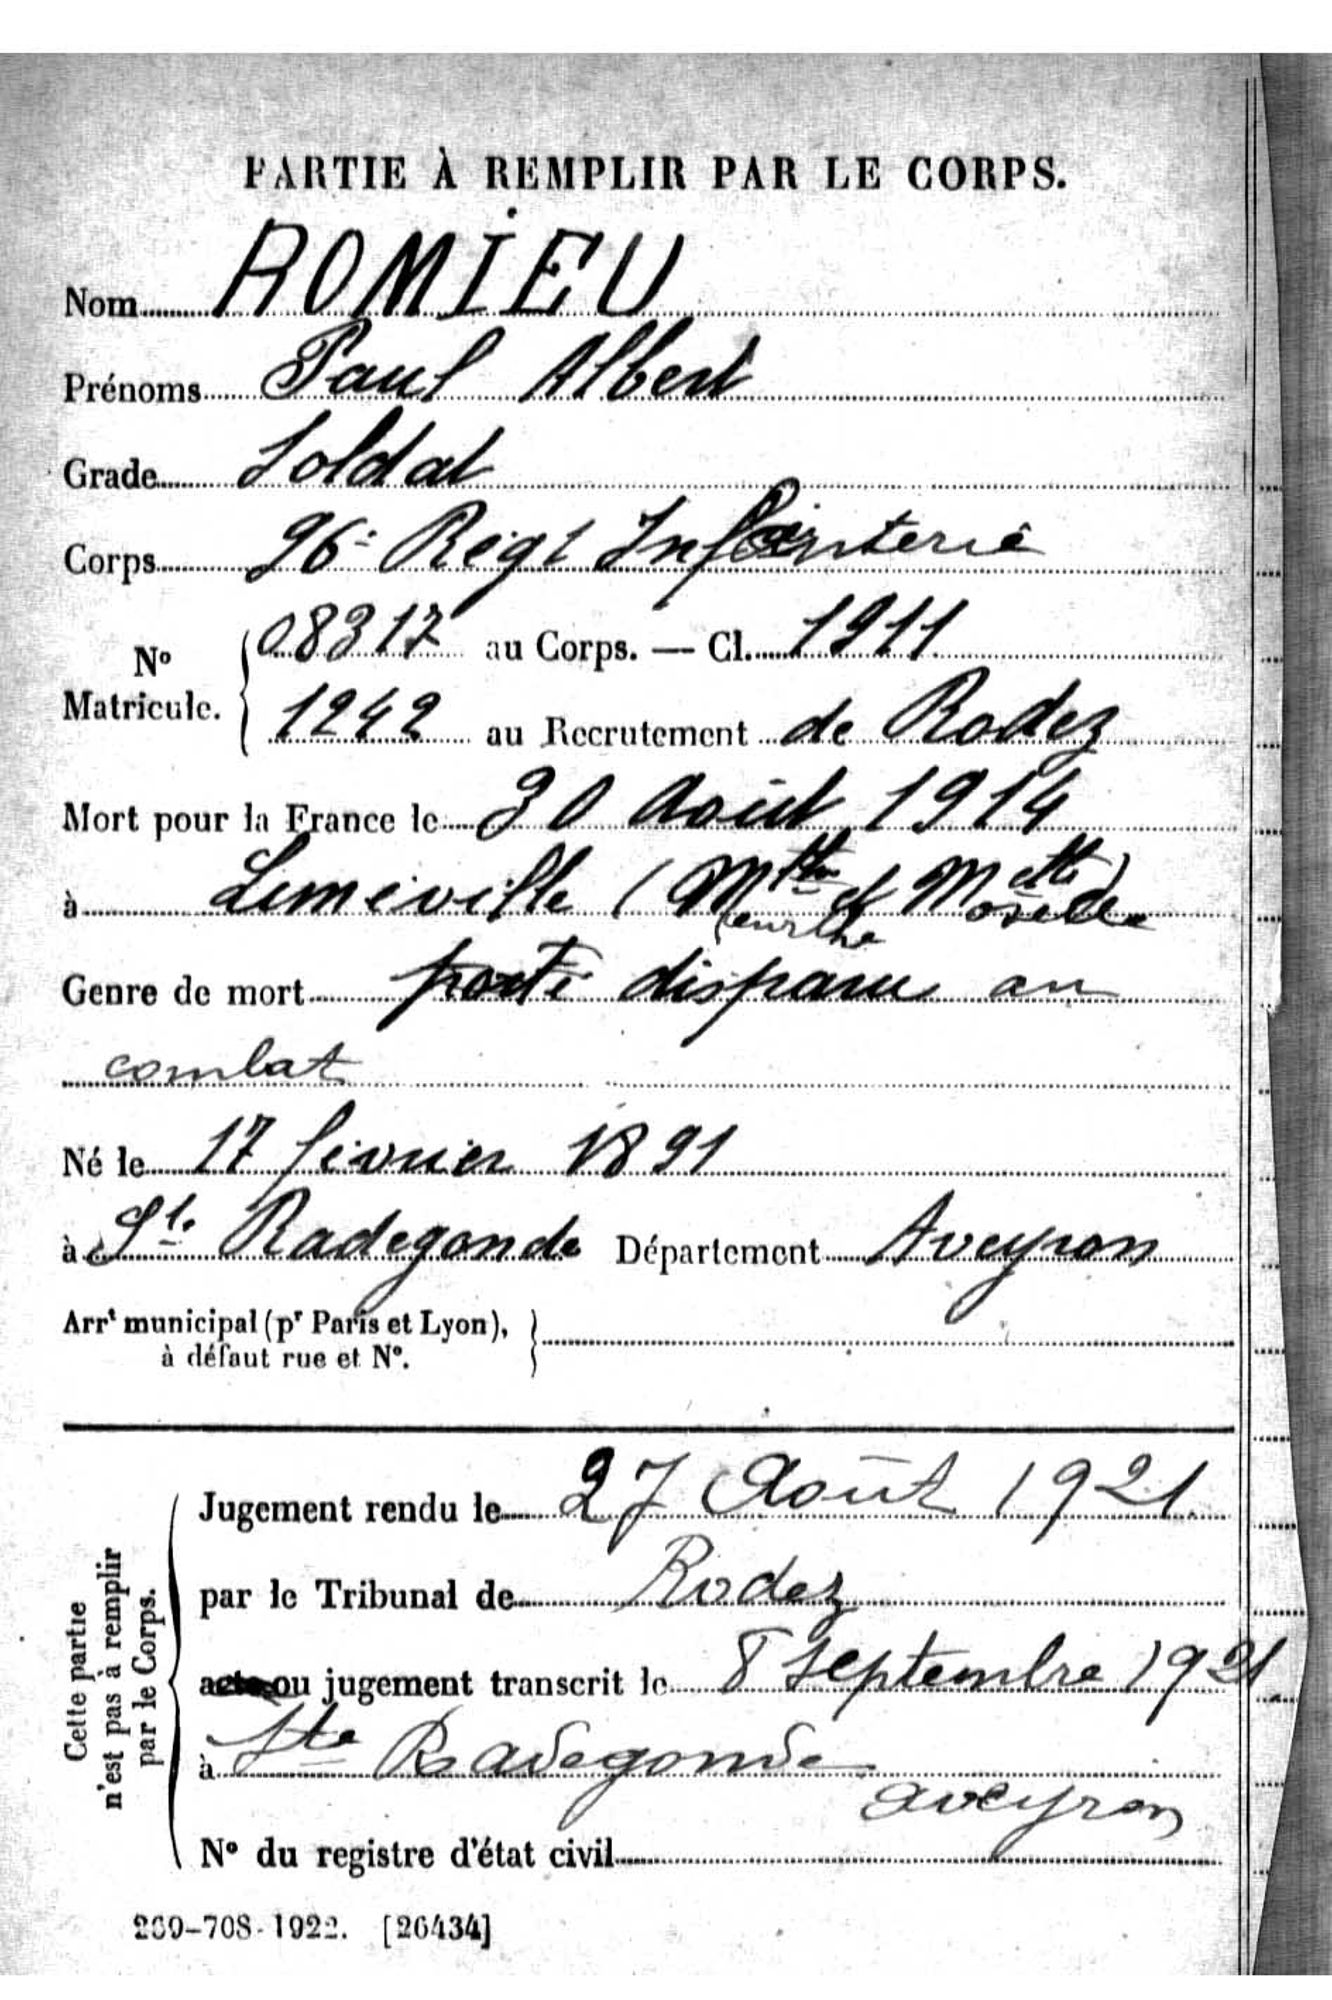 PARTIE À REMPLIR PAR LE CORPS.
Nom ROMIEU
Prénoms Paul Albert
Grade Soldat
Corps 96e Régt Infanterie
No Matricule. { 08317 au Corps. — Cl. 1911
1242 au Recrutement de Rodez
Mort pour la France le 30 Août 1914
à Luméville (Mthe et Moselle)
Meurthe
Genre de mort porté disparu au
combat
Né le 17 février 1891
à Ste Radegonde Département Aveyron
Arrt municipal (pr Paris et Lyon), }
à défaut rue et No.
Cette partie n'est pas à remplir par le Corps.
Jugement rendu le 27 Août 1921.
par le Tribunal de Rodez
acte ou jugement transcrit le 8 septembre 1921.
à Ste Radegonde
aveyron
No du registre d'état civil
269-708-1922. [26434]